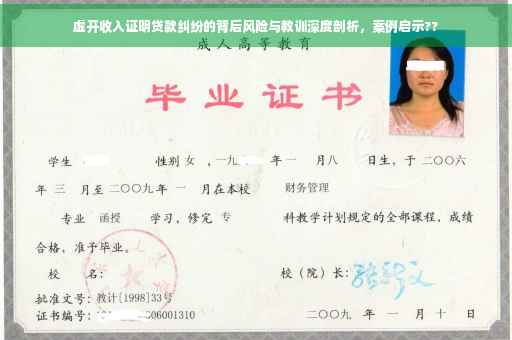 虚开收入证明贷款纠纷的背后风险与教训深度剖析，案例启示??
成人高等教育
毕业证书
学生 性别 女 ，一九 年一 月八 日生，于二〇〇六
年 三 月至二〇〇九年 一 月在本校 财务管理
专业 函授 学习，修完 专 科教学计划规定的全部课程，成绩
合格，准予毕业。
校 名： 校（院）长：
批准文号：教计[1998]33号
证书编号： 06001310 二〇〇九 年 一 月 十 日